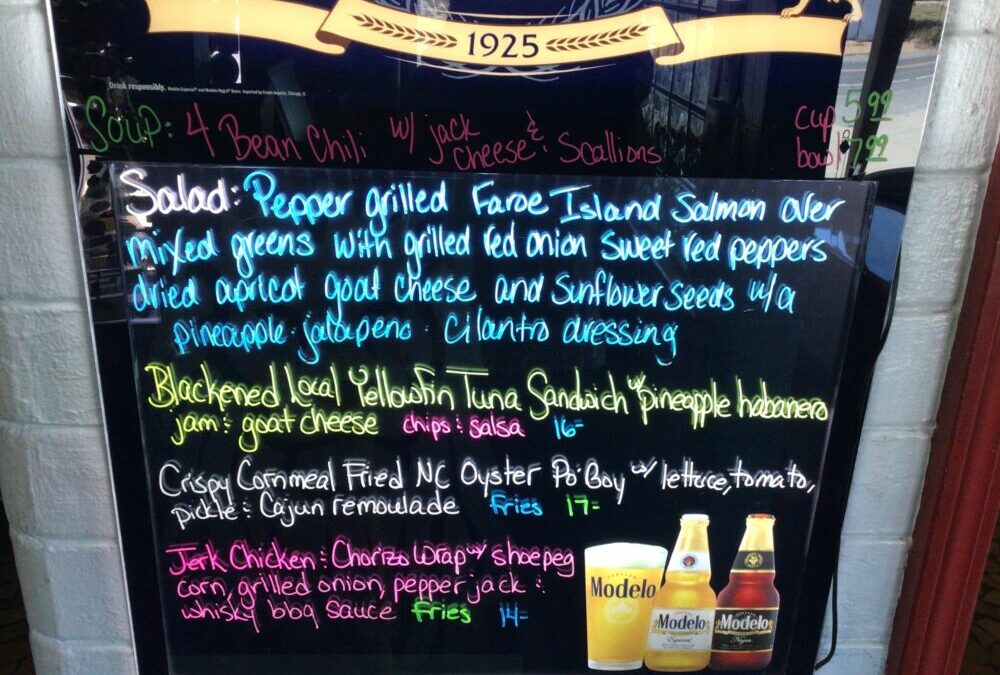 1925
Drink responsibly. Modelo Especial® and Modelo Negra® Beers. Imported by Crown Imports, Chicago, IL
Soup: 4 Bean Chili w/ jack cheese & Scallions
cup 5.99
bowl 7.99
Salad: Pepper grilled Faroe Island Salmon over
mixed greens with grilled red onion sweet red peppers
dried apricot goat cheese and sunflower seeds w/a
pineapple · jalapeno · cilantro dressing
Blackened Local Yellowfin Tuna Sandwich w/ pineapple habanero
jam & goat cheese chips & salsa 16-
Crispy Cornmeal Fried NC Oyster Po-Boy w/ lettuce, tomato,
pickle & Cajun remoulade fries 17-
Jerk Chicken & Chorizo Wrap w/ shoepeg
corn, grilled onion, pepper jack &
whisky bbq sauce fries 14-
Modelo
Modelo
Especial
Modelo
Negra